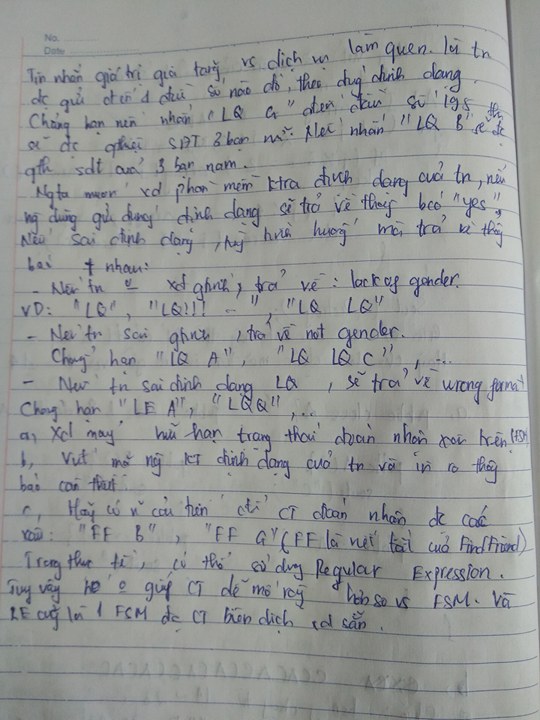 No.
Date
Tin nhắn giá trị gia tăng vs dịch vụ làm quen. là tn
đc gửi đến 1 đầu số nào đó, theo đúng định dạng.
Chẳng hạn nếu nhắn "LQ G" đến đầu số 195 thì
sẽ đc ghửi SĐT 3 bạn nữ. Nếu nhắn "LQ B" sẽ đc
gửi sđt của 3 bạn nam.
Ngta muốn xd phần mềm ktra định dạng của tn, nếu
ng dùng gửi đúng định dạng sẽ trả về thông báo "yes",
Nếu sai định dạng, tuỳ tình huống mà trả về thông
báo ≠ nhau:
- Nếu tn o xđ gtính, trả về: lack of gender.
VD: "LQ", "LQ!!! - ", "LQ LQ"
- Nếu tn sai gtính, trả về not gender.
Chẳng hạn "LQ A", "LQ LQ C", ...
- Nếu tn sai định dạng LQ, sẽ trả về wrong format
Chẳng hạn "LE A", "LQQ", ...
a, Xd máy hữu hạn trạng thái đoán nhận xâu trên (FSM)
b, Viết mã ng KT định dạng của tn và in ra thông
báo cần thiết.
c, Hãy có n cải tiến để CT đoán nhận đc các
xâu: "FF B", "FF G" (FF là viết tắt của Find Friend)
Trong thực tế, có thể sử dụng Regular Expression.
Tuy vậy RE o giúp CT dễ mở rộng hơn so vs FSM. Và
RE cũg là 1 FSM đc CT biên dịch xd sẵn.